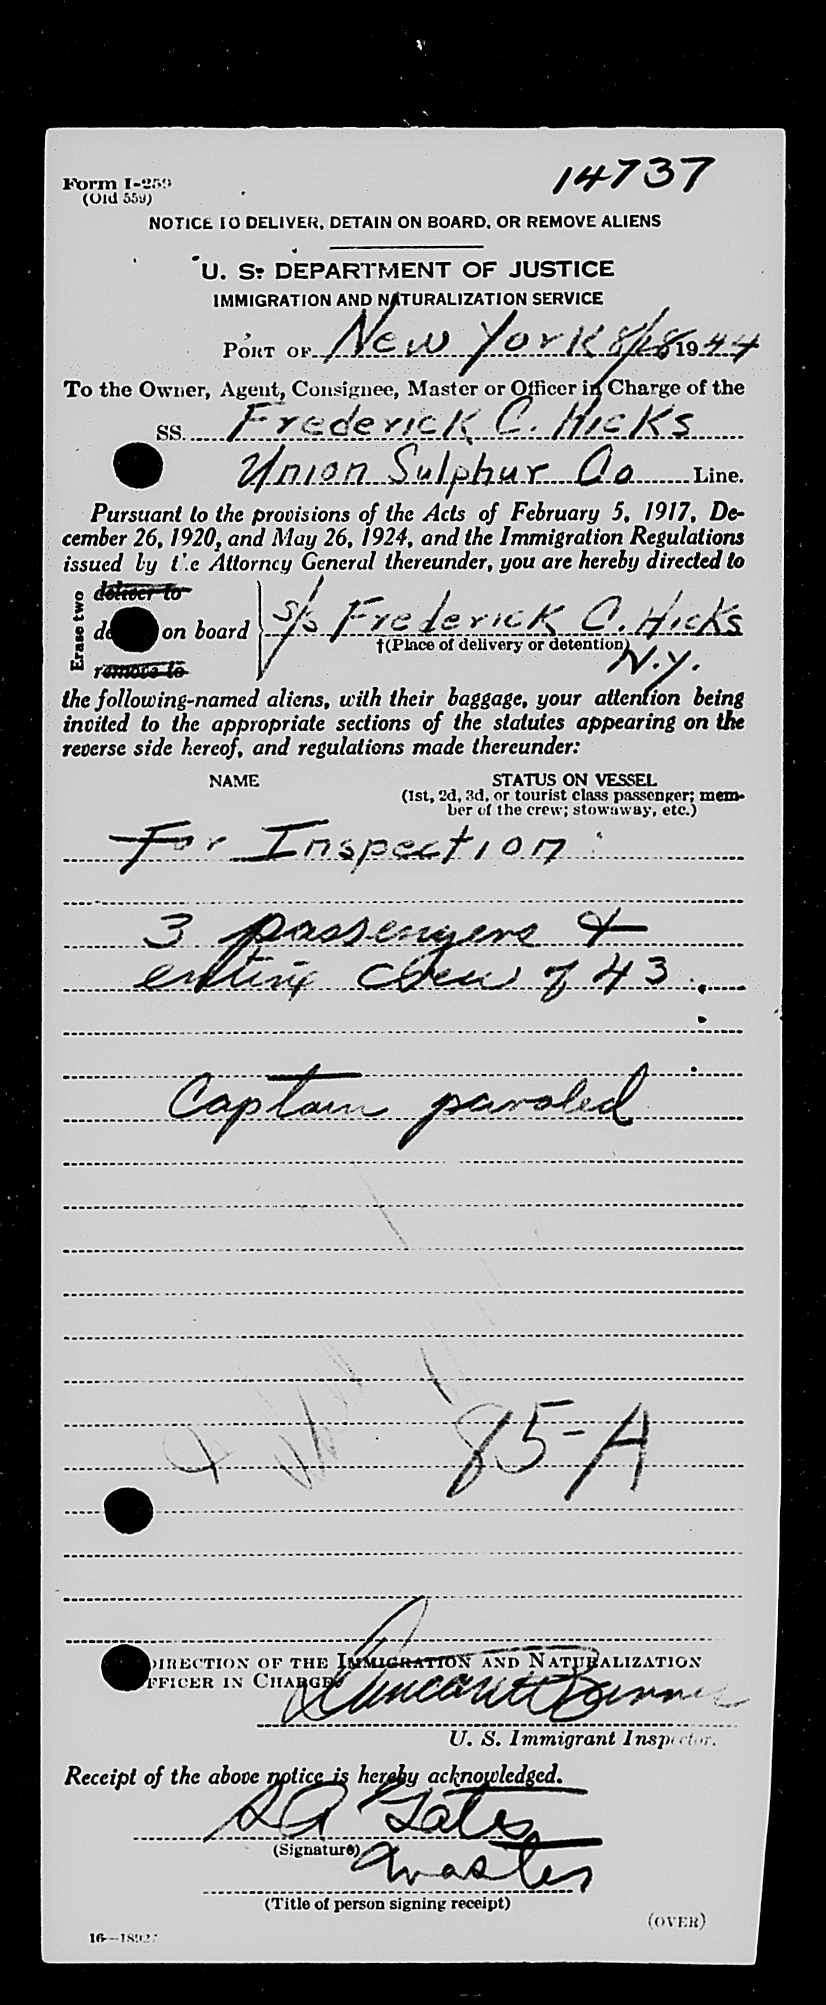 14737
Form I-259
(Old 559)
NOTICE TO DELIVER, DETAIN ON BOARD, OR REMOVE ALIENS
U. S. DEPARTMENT OF JUSTICE
IMMIGRATION AND NATURALIZATION SERVICE
PORT OF New York 8/28 1944
To the Owner, Agent, Consignee, Master or Officer in Charge of the
SS. Frederick C. Hicks
Union Sulphur Co Line.
Pursuant to the provisions of the Acts of February 5, 1917, De-
cember 26, 1920, and May 26, 1924, and the Immigration Regulations
issued by the Attorney General thereunder, you are hereby directed to
Erase two
deliver to
de on board s/s Frederick C. Hicks
†(Place of delivery or detention)
remove to N.Y.
the following-named aliens, with their baggage, your attention being
invited to the appropriate sections of the statutes appearing on the
reverse side hereof, and regulations made thereunder:
NAME STATUS ON VESSEL
(1st, 2d, 3d, or tourist class passenger; mem-
ber of the crew; stowaway, etc.)
For Inspection
3 passengers &
entire crew of 43
Captain paroled
85-A
DIRECTION OF THE IMMIGRATION AND NATURALIZATION
OFFICER IN CHARGE
U. S. Immigrant Inspector.
Receipt of the above notice is hereby acknowledged.
S A Gates
(Signature)
Master
(Title of person signing receipt)
(OVER)